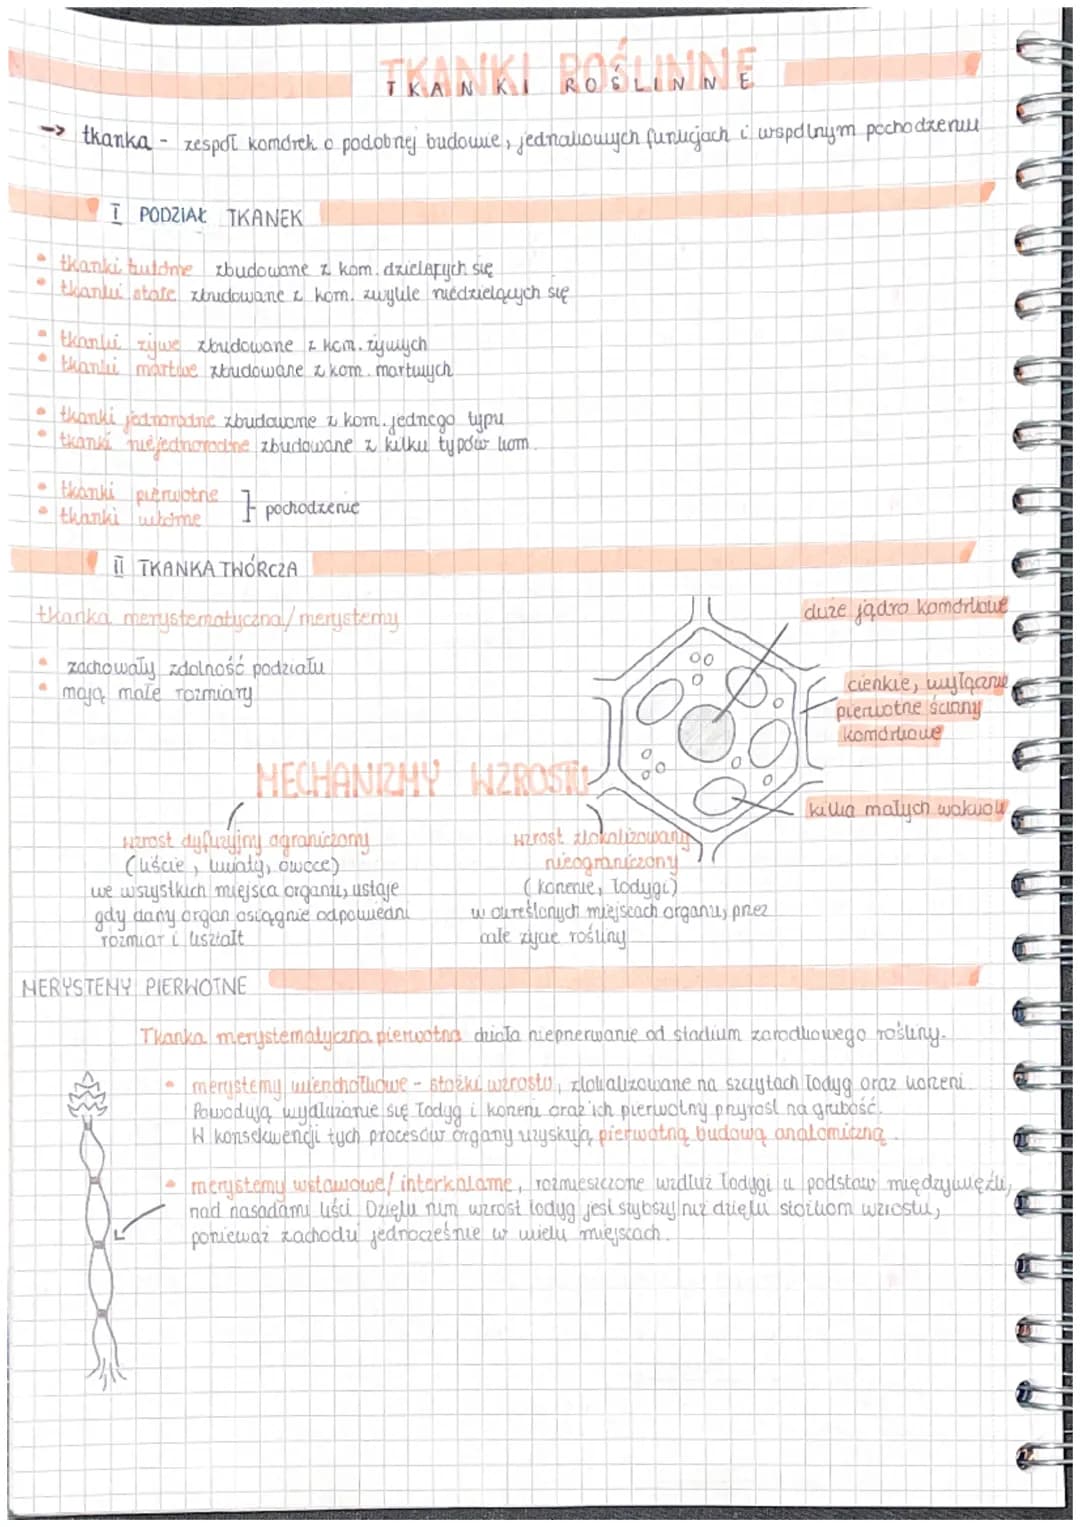 TKANKI ROŚLINNE
→ tkanka - zespół komórek o podobnej budowie, jednakowych funkcjach i wspólnym pochodzeniu
I PODZIAŁ TKANEK
• tkanki twórcze zbudowane z kom. dzielących się
• tkanki stałe zbudowane z kom. zwykle niedzielących się
• tkanki żywe zbudowane z kom. żywych
• tkanki martwe zbudowane z kom. martwych
• tkanki jednorodne zbudowane z kom. jednego typu
• tkanki niejednorodne zbudowane z kilku typów kom.
• tkanki pierwotne
• tkanki wtórne
} pochodzenie
II TKANKA TWÓRCZA
tkanka merystematyczna/merystemy
• zachowały zdolność podziału
• mają małe rozmiary
duże jądro komórkowe
cienkie, wyłącznie
pierwotne ściany
komórkowe
kilka małych wakuol
MECHANIZMY WZROSTU
wzrost dyfuzyjny ograniczony
(liście, kwiaty, owoce)
we wszystkich miejsca organu, ustaje
gdy dany organ osiągnie odpowiedni
rozmiar i kształt
wzrost zlokalizowany
nieograniczony
(korzenie, łodygi)
w określonych miejscach organu, przez
całe życie rośliny
MERYSTEMY PIERWOTNE
Tkanka merystematyczna pierwotna działa nieprzerwanie od stadium zarodkowego rośliny.
• merystemy wierzchołkowe - stożki wzrostu, zlokalizowane na szczytach łodyg oraz korzeni.
Powodują wydłużanie się łodyg i korzeni oraz ich pierwotny przyrost na grubość.
W konsekwencji tych procesów organy uzyskują pierwotną budową anatomiczną.
• merystemy wstawowe/interkalarne, rozmieszczone wzdłuż łodygi u podstaw międzywęźli,
nad nasadami liści. Dzięki nim wzrost łodyg jest szybszy niż dzięki stożkom wzrostu,
ponieważ zachodzi jednocześnie w wielu miejscach.